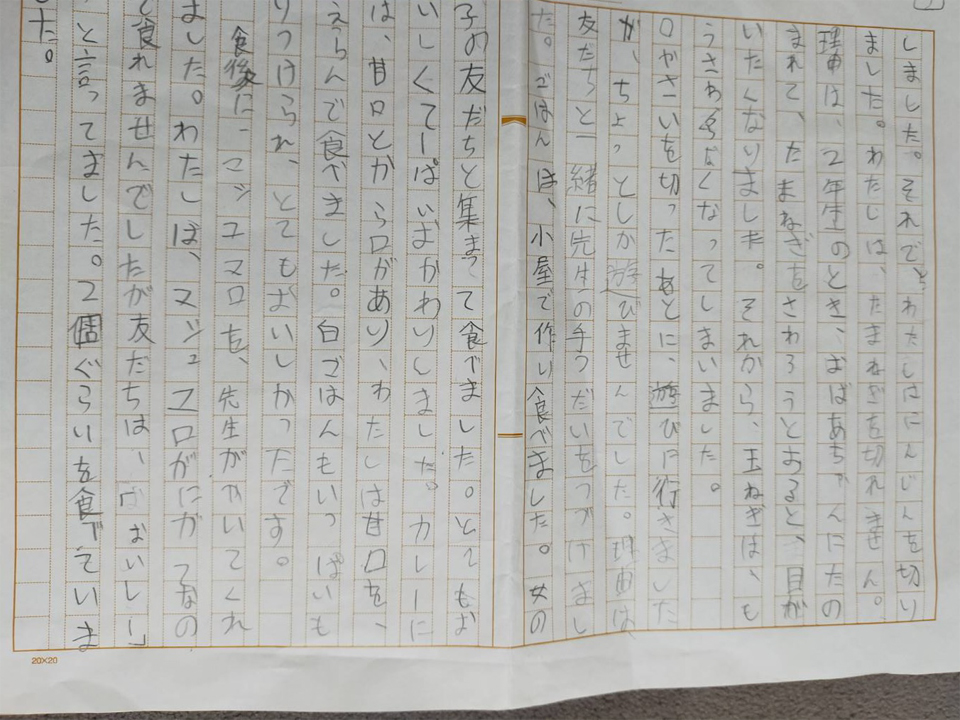 しました。それで、わたしはにんじんを切り
ました。わたしは、たまねぎを切れません。
理由は、2年生のとき、おばあちゃんにたの
まれて、たまねぎをさわろうとすると、目が
いたくなりました。それから、玉ねぎは、も
うさわらなくなってしまいました。
やさいを切ったあとに、遊びに行きました
が、ちょっとしか遊びませんでした。理由は
友だちと一緒に先生の手つだいをつづけまし
た。ごはんは、小屋で作り食べました。女の
子の友だちと集まって食べました。とてもお
いしくて一ぱいおかわりしました。カレーに
は、甘口とから口があり、わたしは甘口を、
えらんで食べきした。白ごはんもいっぱいも
りつけられ、とてもおいしかったです。
食後に、マシュマロを、先生がやいてくれ
ました。わたしは、マシュマロがにがてなの
で食れませんでしたが友だちは、「おいしー」
と言ってました。2個ぐらいを食べていま
した。
20×20